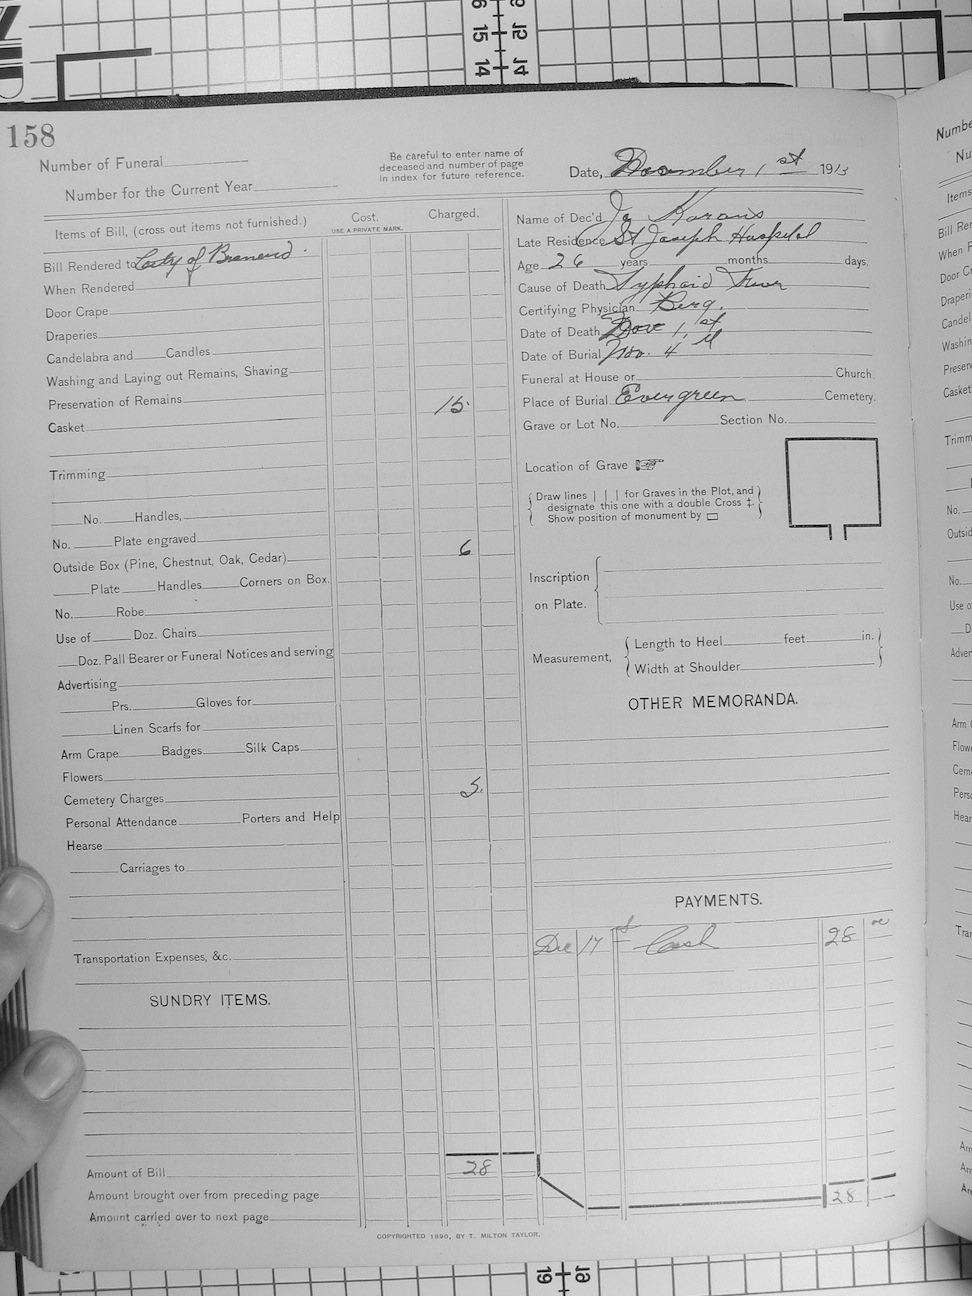 158
Number of Funeral
Number for the Current Year
Be careful to enter name of
deceased and number of page
in index for future reference.
Date, December 1st 1913
Items of Bill, (cross out items not furnished.)
Cost.
USE A PRIVATE MARK.
Charged.
Bill Rendered to City of Brainerd.
When Rendered
Door Crape
Draperies
Candelabra and Candles
Washing and Laying out Remains, Shaving
Preservation of Remains
Casket 15.
Trimming
No. Handles,
No. Plate engraved
Outside Box (Pine, Chestnut, Oak, Cedar) 6
Plate Handles Corners on Box.
No. Robe
Use of Doz. Chairs
Doz. Pall Bearer or Funeral Notices and serving
Advertising
Prs. Gloves for
Linen Scarfs for
Arm Crape Badges Silk Caps
Flowers
Cemetery Charges 5.
Personal Attendance Porters and Help
Hearse
Carriages to
Transportation Expenses, &c.
SUNDRY ITEMS.
Amount of Bill 28
Amount brought over from preceding page
Amount carried over to next page
Name of Dec'd
Late Residence St Joseph Hospital
Age 26 years months days.
Cause of Death Typhoid Fever
Certifying Physician Berg.
Date of Death 1st
Date of Burial Nov. 4
Funeral at House or Church
Place of Burial Evergreen Cemetery.
Grave or Lot No. Section No.
Location of Grave
Draw lines | | | for Graves in the Plot, and
designate this one with a double Cross ‡.
Show position of monument by
Inscription
on Plate.
Measurement,
Length to Heel feet in.
Width at Shoulder
OTHER MEMORANDA.
PAYMENTS.
Dec 17 Cash 28
28
COPYRIGHTED 1890, BY T. MILTON TAYLOR.